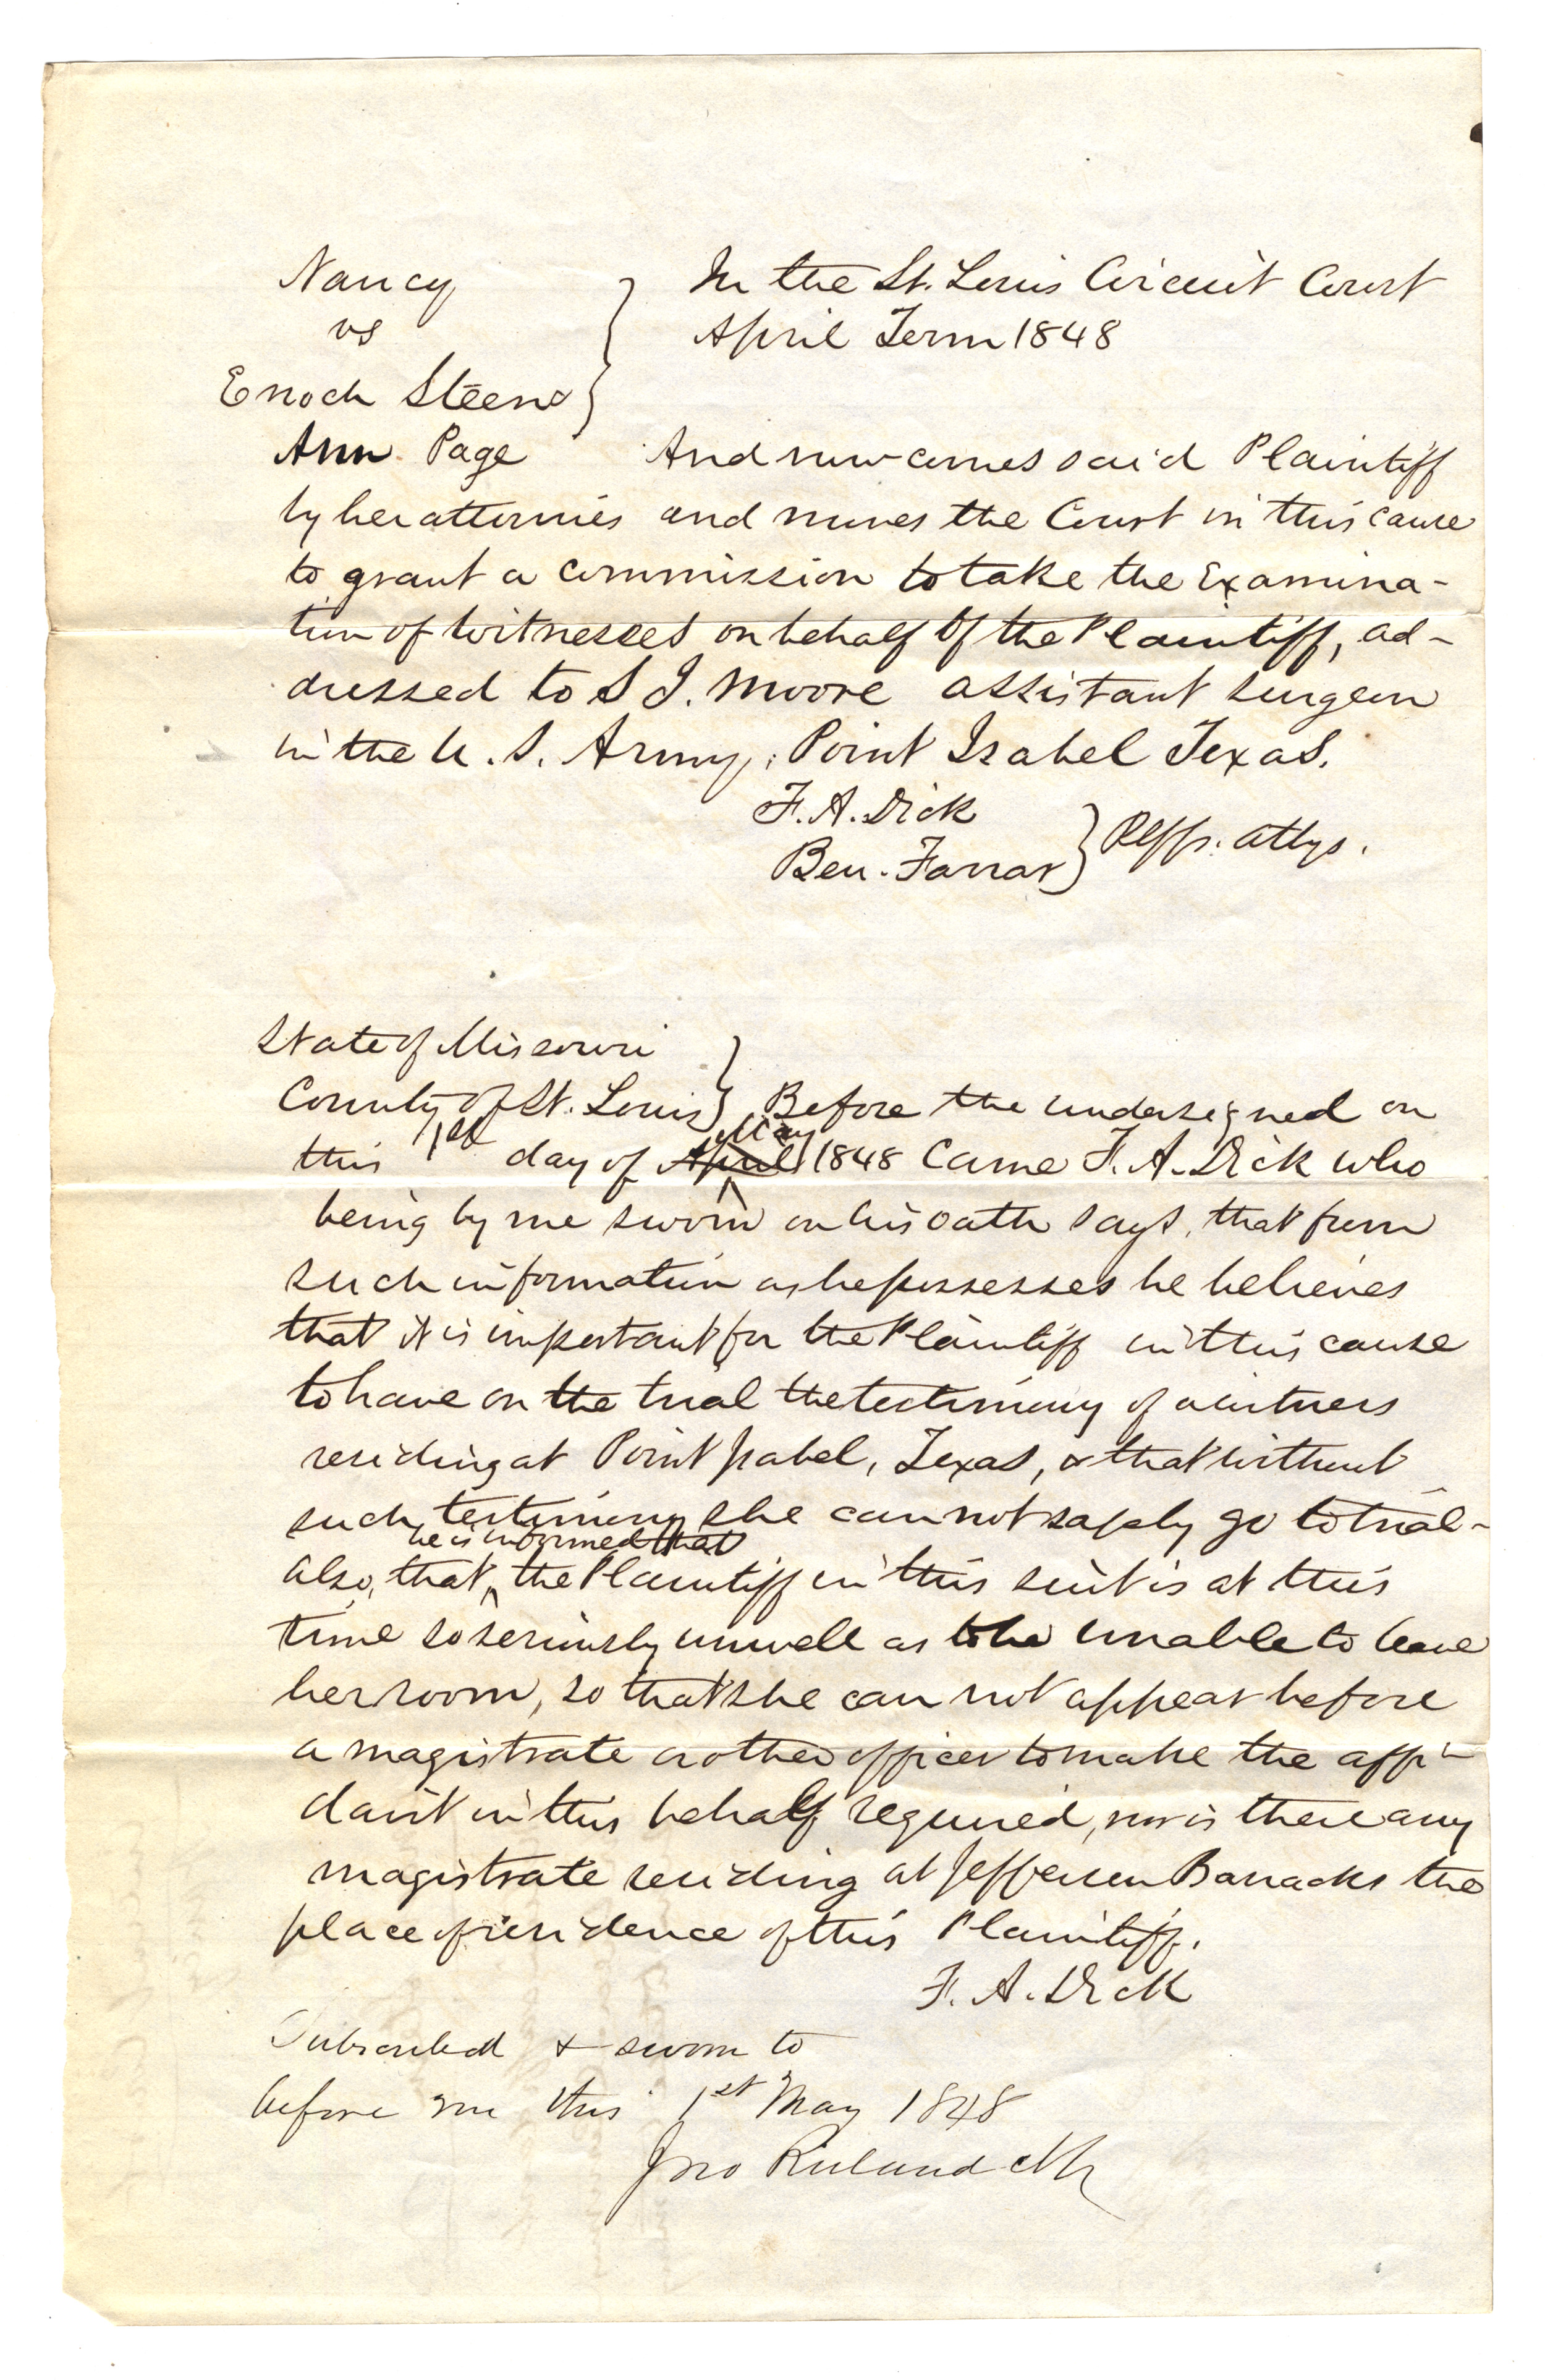 Nancy
vs
Enoch Steen
Ann Page
In the St. Louis Circuit Court
April Term 1848
And now comes said Plaintiff
by her attornies and moves the Court in this cause
to grant a commission to take the Examina-
tion of witnesses on behalf of the Plaintiff, ad-
dressed to S J. Moore assistant surgeon
in the U. S. Army, Point Isabel Texas.
F. A. Dick
Ben. Farrar
Plffs. attys.
State of Missouri
County of St. Louis
Before the undersigned on
this 1st day of April May 1848 Came F. A. Dick who
being by me sworn on his oath says, that from
such information as he possesses he believes
that it is important for the Plaintiff in this cause
to have on the trial the testimony of a witness
residing at Point Isabel, Texas, & that without
such testimony she can not safely go to trial-
also, that he is informed that the Plaintiff in this suit is at this
time so seriously unwell as to be unable to leave
her room, so that she can not appear before
a magistrate or other officer to make the affi-
davit in this behalf required, nor is there any
magistrate residing at Jefferson Barracks the
place of residence of this Plaintiff.
F. A. Dick
Subscribed & sworn to
before me this 1st May 1848
Jno Ruland Clk